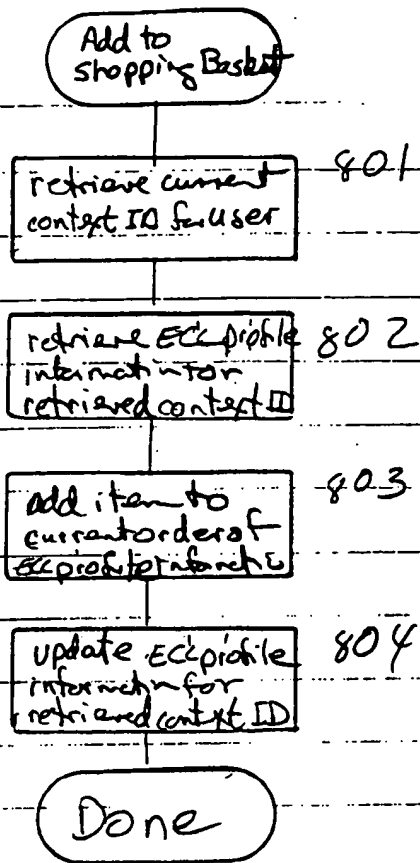 Add to
shopping Basket
retrieve current 801
context ID for user
retrieve ECC profile 802
information for
retrieved context ID
add item to 803
current order of
ECC profile
update ECC profile 804
information for
retrieved context ID
Done